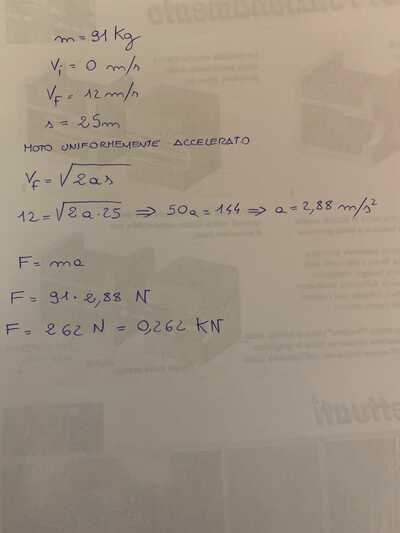 m = 91 Kg
Vi = 0 m/s
VF = 12 m/s
s = 25m
MOTO UNIFORMEMENTE ACCELERATO
VF = √2as
12 = √2a·25 ⇒ 50a = 144 ⇒ a = 2,88 m/s²
F = ma
F = 91 · 2,88 N
F = 262 N = 0,262 KN